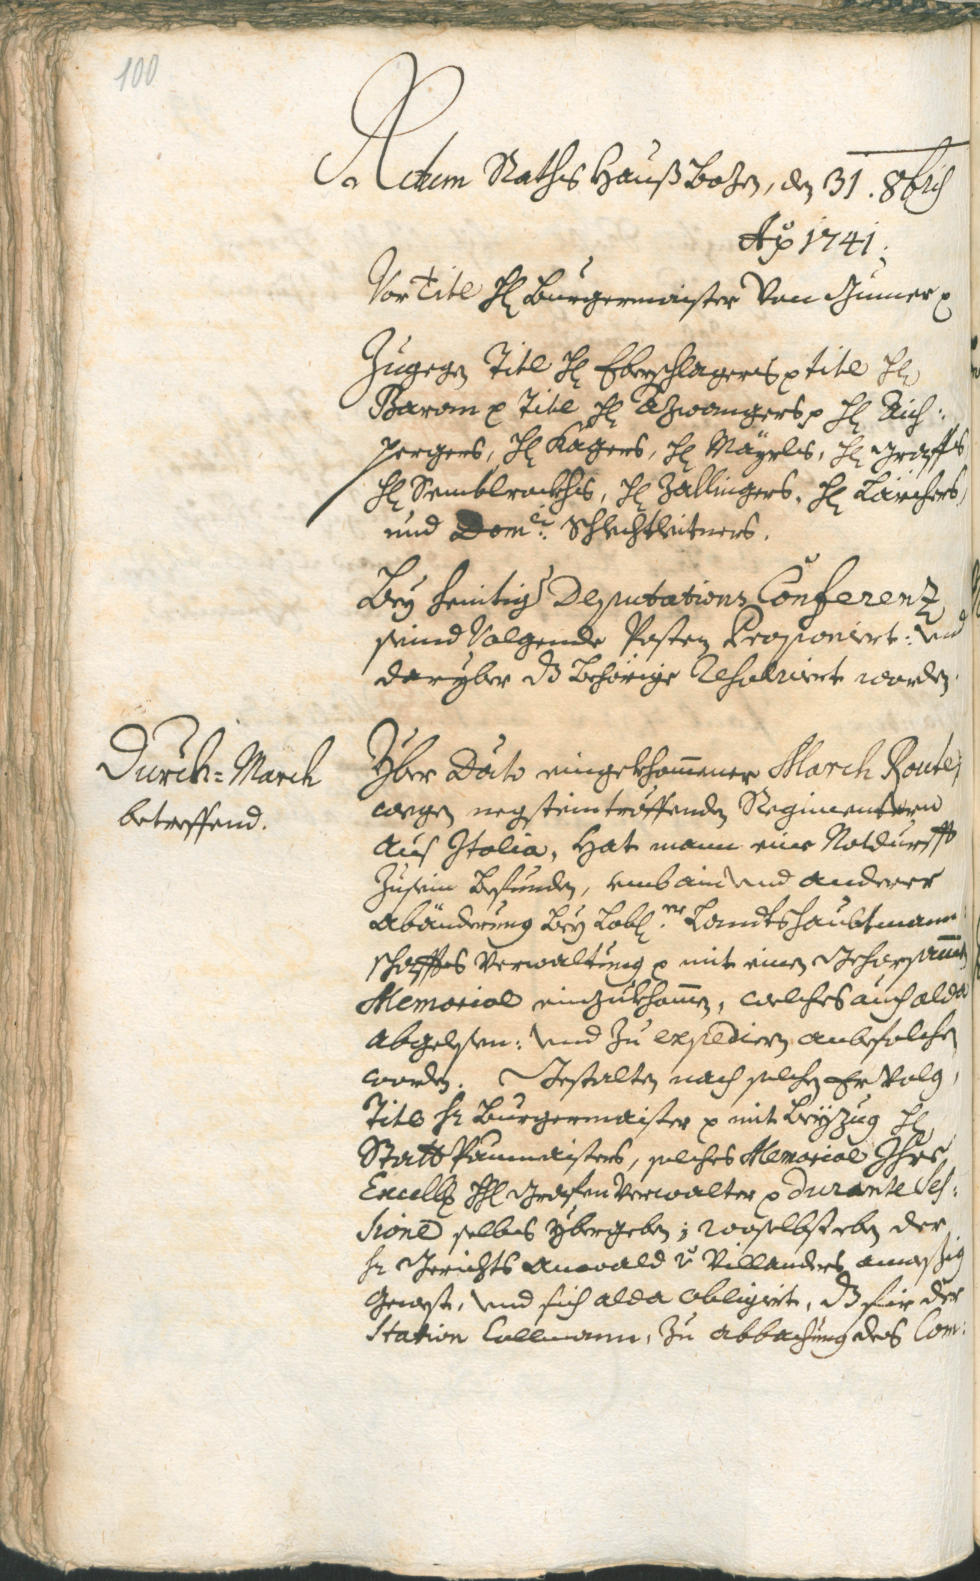 100
Actum Rathshauß Bozen, den 31. 8bris
Ao 1741.
Vor Titl H. Burgermaister von Gumer p
Zugegen Titl H. Eberschlagers p titl H.
Barom p Titl H. Azwangers p H. Aich:
pergers, H. Kagers, H. Mayrls, H. Graffs
H. Semblrockhs, H. Zallingers, H. Larchers,
und Dom: Schlechtleitners.
Bey heintig Deputations Conferenz
seind volgende Posten Proponiert: und
daryber dz behörige Resolviert worden.
Durch-March
betreffend.
Yber Dato eingekhomener March Route,
wegen negst eintröffenden Regimentern
aus Italia, hat mann eine Notdurfft
zusein befunden, umb ain und anderer
abänderung bey Lobl. Landtshaubtmann
schaffts Verwaltung p mit einen gehorsamen
Memorial einzukhomen, welches auch alda
abgelesen: und zu expediern anbefolchen
worden. Gestalten nach solchen ervolg,
Titl H. Burgermaister p mit Beyzug H.
Statt Paumaisters, solches Memorial Ihro
Excell. H. Grafen Verwalter p durante Ses:
sione selbs ybergeben; wo selbst eben der
H. Gerichts Anwald v. Villanders anwesig
gewest, und sich alda obligiert, dz für die
Station Collmann, zu abbachung des Com: